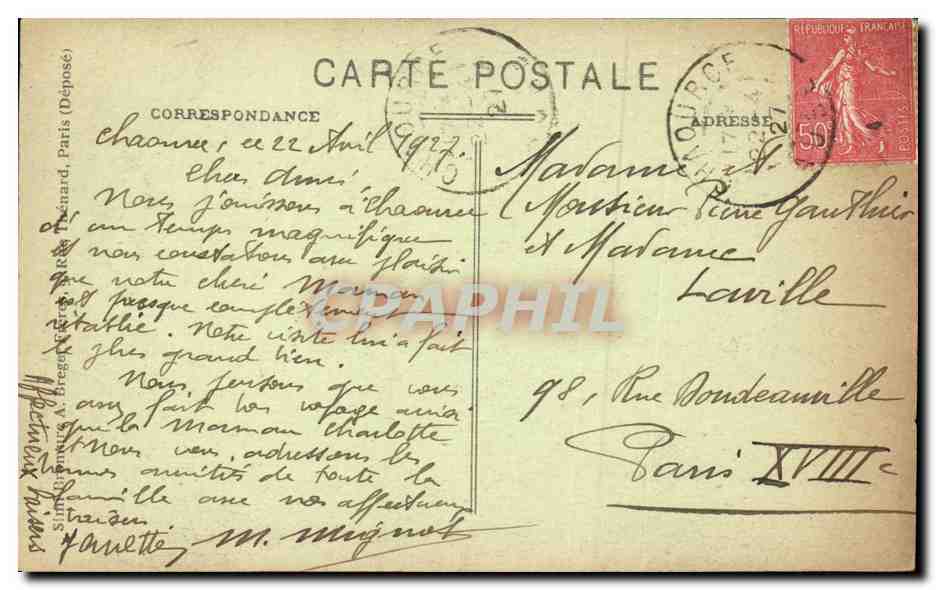 CARTE POSTALE
CORRESPONDANCE
ADRESSE
RÉPUBLIQUE FRANÇAISE
50c
POSTES
CHAOURCE
CHAOURCE
Chaource, ce 22 Avril 1927.
Chers amis
Nous jouissons à Chaource
d'un temps magnifique
et nous constatons avec plaisir
que notre chère Maman
est presque complètement
rétablie. Notre visite lui a fait
le plus grand bien.
Nous pensons que vous
avez fait bon voyage ainsi
que la Maman Charlotte
Nous vous adressons les
bonnes amitiés de toute la
famille avec nos affectueux
baisers
M. Mignot
Affectueux baisers
Madame et
Monsieur Pierre Gauthier
et Madame
Laville
98, Rue Doudeauville
Paris XVIIIe
Simili-Bromure A. Breger Frères, Rue Thénard, Paris (Déposé)
CPAPHIL